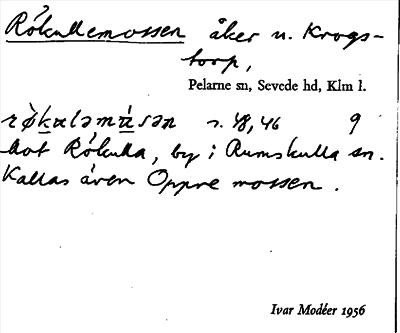 Rökullemossen åker u. Krogs-
torp,
Pelarne sn, Sevede hd, Klm l.
s. 48, 46 9
hot Rökulla, by i Rumskulla sn.
Kallas även Oppre mossen.
Ivar Modéer 1956